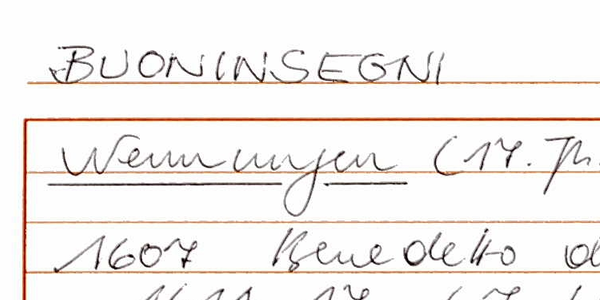 BUONINSEGNI
Wennungen (17. Jh.
1607 Benedetto d